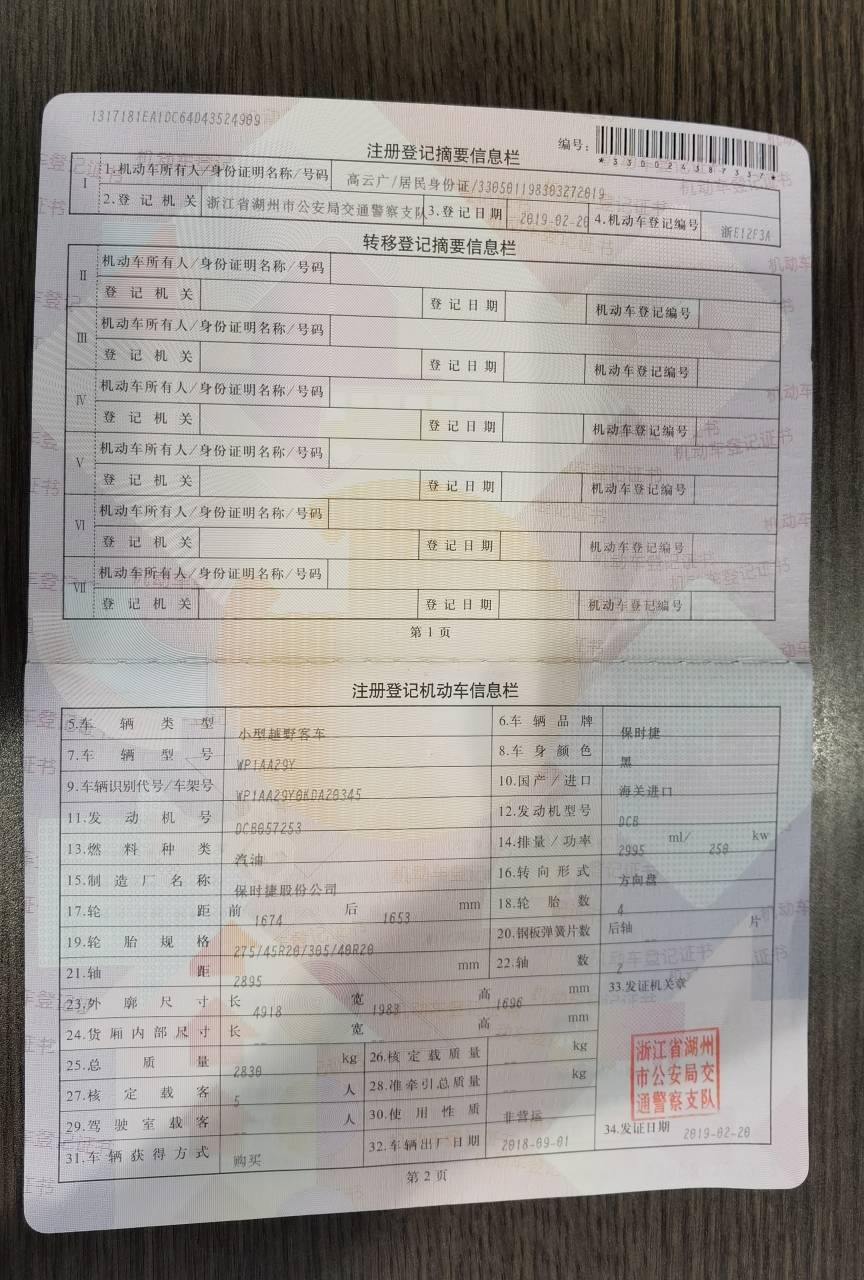 1317181EA1DC64D43524909
编号:
*330024387337*
注册登记摘要信息栏
Ⅰ 1.机动车所有人/身份证明名称/号码 高云广/居民身份证/330501198303272019
2.登记机关 浙江省湖州市公安局交通警察支队 3.登记日期 2019-02-20 4.机动车登记编号 浙E12F3A
转移登记摘要信息栏
Ⅱ 机动车所有人/身份证明名称/号码
登记机关 登记日期 机动车登记编号
Ⅲ 机动车所有人/身份证明名称/号码
登记机关 登记日期 机动车登记编号
Ⅳ 机动车所有人/身份证明名称/号码
登记机关 登记日期 机动车登记编号
Ⅴ 机动车所有人/身份证明名称/号码
登记机关 登记日期 机动车登记编号
Ⅵ 机动车所有人/身份证明名称/号码
登记机关 登记日期 机动车登记编号
Ⅶ 机动车所有人/身份证明名称/号码
登记机关 登记日期 机动车登记编号
第1页
注册登记机动车信息栏
5.车辆类型 小型越野客车 6.车辆品牌 保时捷
7.车辆型号 WP1AA29Y 8.车身颜色 黑
9.车辆识别代号/车架号 WP1AA29Y0KDA20345 10.国产/进口 海关进口
11.发动机号 DCB057253 12.发动机型号 DCB
13.燃料种类 汽油 14.排量/功率 2995 ml/ 250 kw
15.制造厂名称 保时捷股份公司 16.转向形式 方向盘
17.轮距 前 1674 后 1653 mm 18.轮胎数 4
19.轮胎规格 275/45R20/305/40R20 20.钢板弹簧片数 后轴 -- 片
21.轴距 2895 mm 22.轴数 2
23.外廓尺寸 长 4918 宽 1983 高 1696 mm 33.发证机关章
24.货厢内部尺寸 长 -- 宽 -- 高 -- mm
25.总质量 2830 kg 26.核定载质量 -- kg
27.核定载客 5 人 28.准牵引总质量 -- kg
29.驾驶室载客 -- 人 30.使用性质 非营运
31.车辆获得方式 购买 32.车辆出厂日期 2018-09-01 34.发证日期 2019-02-20
浙江省湖州
市公安局交
通警察支队
第2页